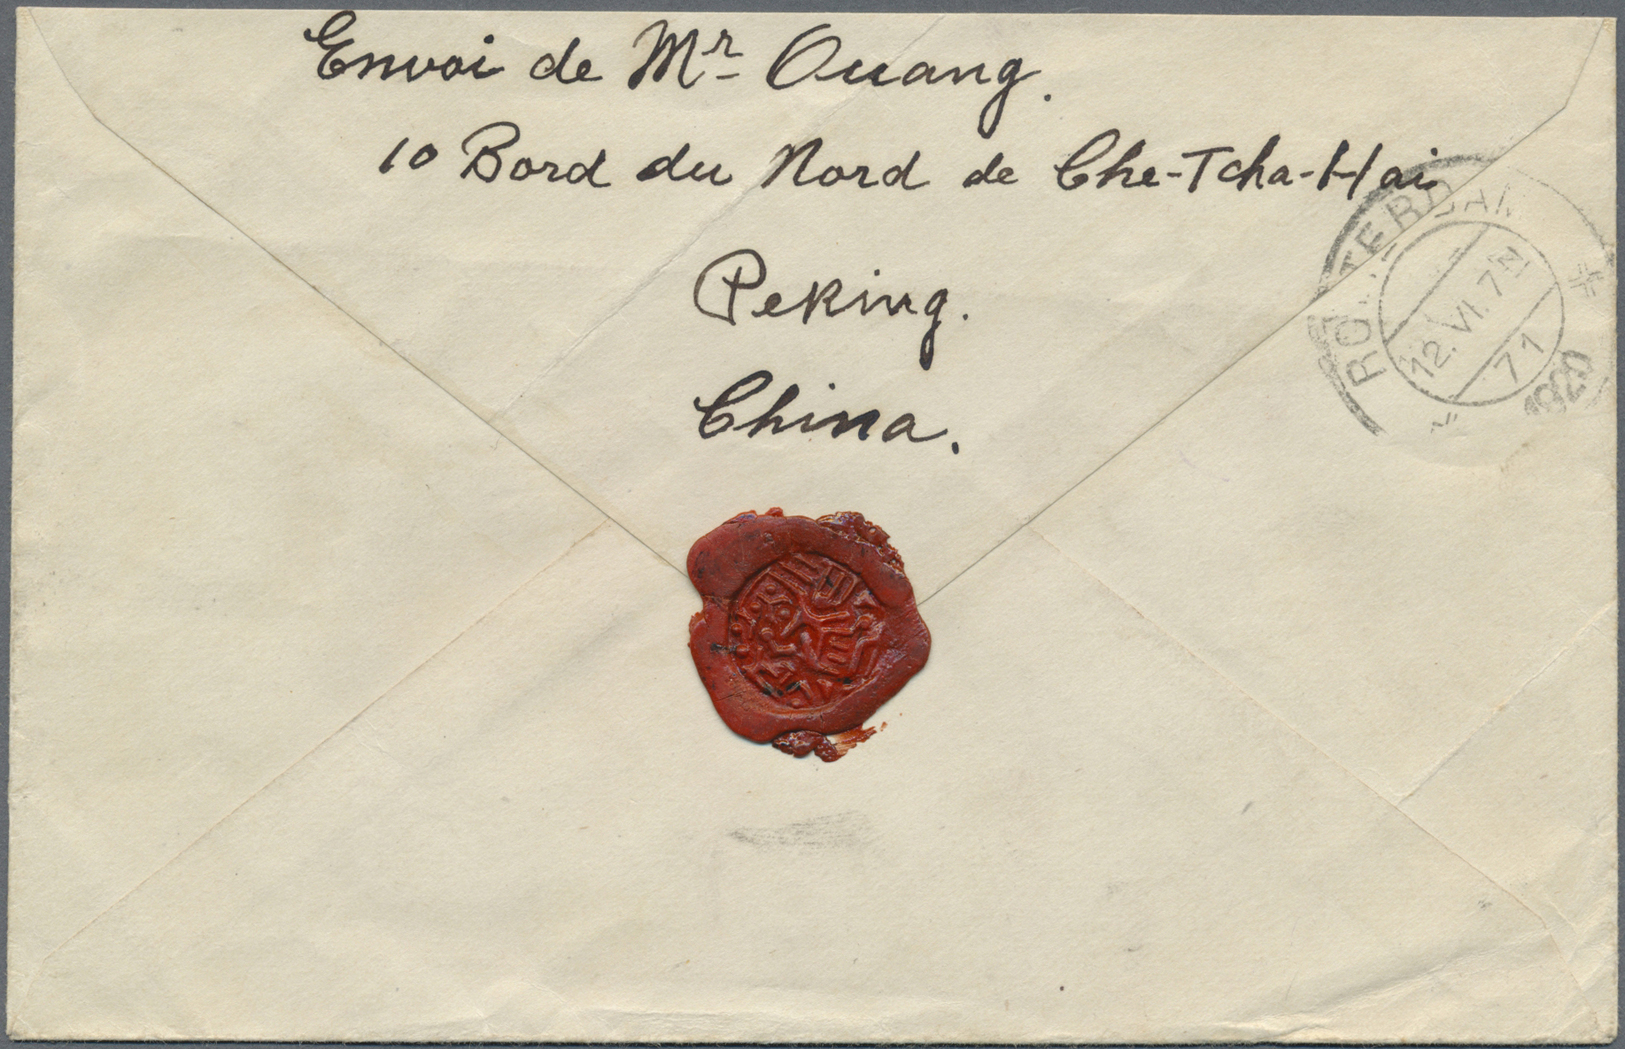 Envoi de Mr Ouang.
10 Bord du Nord de Che-Tcha-Hai
Peking.
China.
ROTTERDAM
12.VI.7N
71
1920